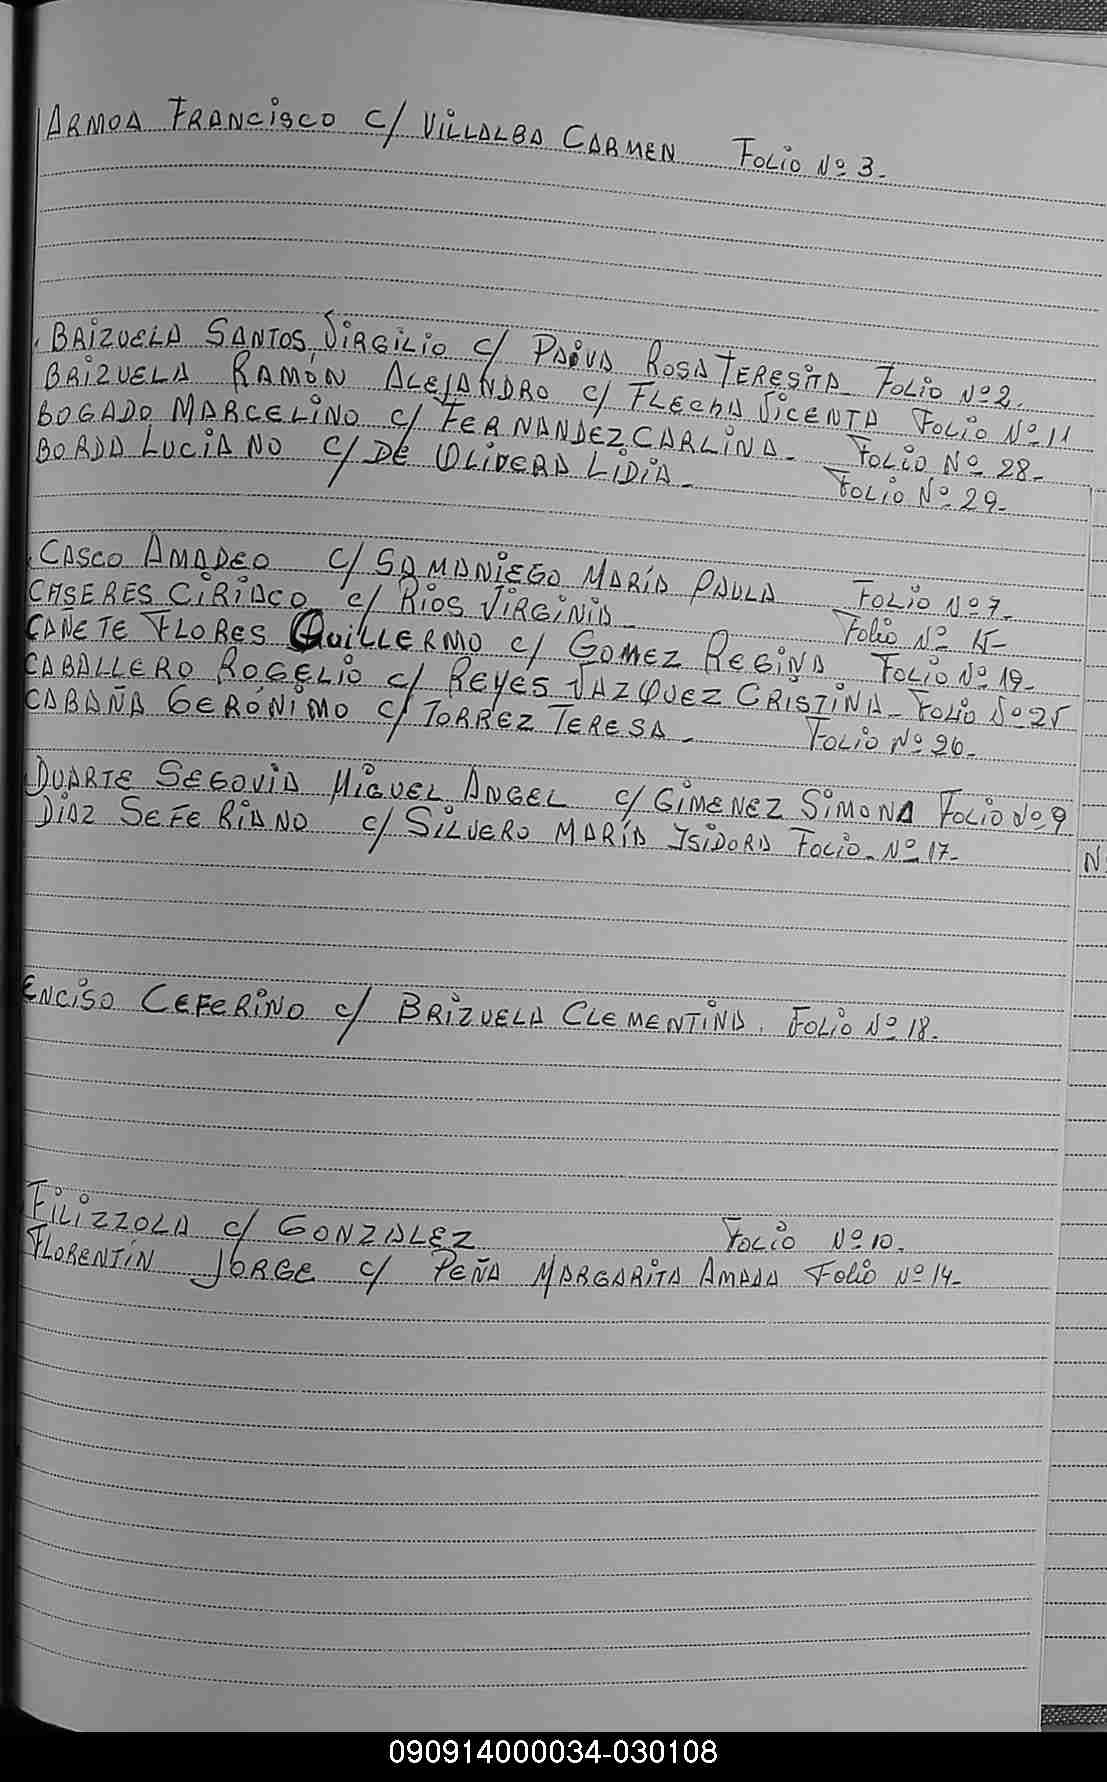 ARMOA FRANCISCO C/ VILLALBA CARMEN FOLIO Nº 3.
BRIZUELA SANTOS VIRGILIO C/ PAIVA ROSA TERESITA FOLIO Nº 2.
BRIZUELA RAMÓN ALEJANDRO C/ FLECHA VICENTA FOLIO Nº 11
BOGADO MARCELINO C/ FERNANDEZ CARLINA - FOLIO Nº 28-
BORDA LUCIANO C/ DE OLIVERA LIDIA - FOLIO Nº 29-
CASCO AMADEO C/ SAMANIEGO MARÍA PAULA FOLIO Nº 7-
CASERES CIRIACO C/ RIOS VIRGINIA - FOLIO Nº 15-
CAÑETE FLORES GUILLERMO C/ GOMEZ REGINA FOLIO Nº 19-
CABALLERO ROGELIO C/ REYES VAZQUEZ CRISTINA - FOLIO Nº 25
CABAÑA GERÓNIMO C/ TORREZ TERESA - FOLIO Nº 26-
DUARTE SEGOVIA MIGUEL ANGEL C/ GIMENEZ SIMONA FOLIO Nº 9
DIAZ SEFERIANO C/ SILVERO MARÍA YSIDORA FOLIO - Nº 17-
ENCISO CEFERINO C/ BRIZUELA CLEMENTINA. FOLIO Nº 18-
FILIZZOLA C/ GONZALEZ FOLIO Nº 10.
FLORENTÍN JORGE C/ PEÑA MARGARITA AMADA FOLIO Nº 14-
N
090914000034-030108